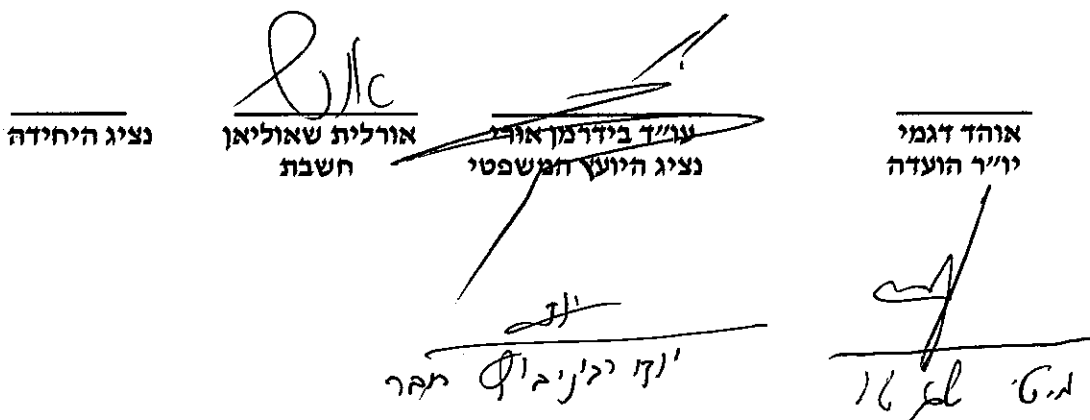 אוהד דגמי
יו״ר הועדה
עו״ד בידרמן אורי
נציג היועץ המשפטי
אורלית שאוליאן
חשבת
נציג היחידה
יודי רבינוביץ חבר